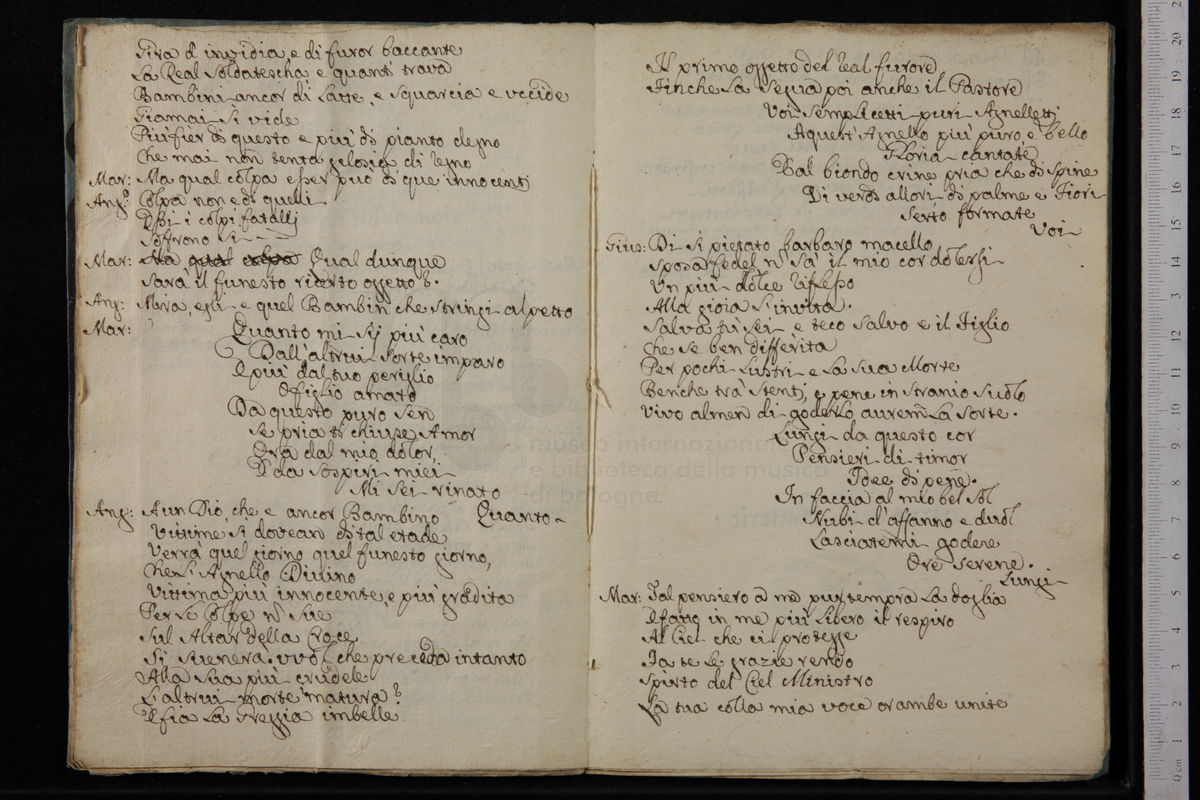 Gira d'invidia e di furor baccante
La Real Soldatescha e quanti trova
Bambini ancor di Latte, e squarcia e uccide
Giamai si vide
Piu fier di questo e piu di pianto degno
Che mai non tenta gelosia di regno
Mar: Ma qual colpa esser può di que innocenti
Ang.o Colpa non e di quelli
Essi i colpi fatalij
Soffrono si
Mar: Ma qual colpa Qual dunque
Sarà il funesto riderto oggetto?
Ang: Mira, egli e quel Bambin che stringi al petto
Mar: Quanto mi sij più caro
Dall'altrui sorte imparo
E più dal tuo periglio
O figlio amato
Da questo puro sen
Se pria ti chiuse Amor
Ora dal mio dolor,
E da sospiri miei
Mi sei rinato
Quanto
Ang: A un Dio, che e ancor Bambino
Vittime si dovean di tal etade
Verrà quel giorno quel funesto giorno,
Che L'Agnello Divino
Vittima più innocente, e più gradita
Per le Colpe n sue
Sul Altar della Croce
Si svenerà. vuol che preceda intanto
Alla sua più crudele
L'altrui morte matura?
E sia la Greggia imbelle
Il primo oggetto del Real furore
Finche la segua poi anche il Pastore
Voi semplicetti puri Agnelletti
A quest'Agnello più puro, e bello
Gloria cantate
Bal biondo crine pria che di spine
Di verdi allori di palme e Fiori
Serto formate
Voi
Gius: Di si piegato barbaro macello
Sposa fedel n sà il mio cor dolersi
Un più dolce riflesso
Alla gioia s'invita.
Salva tù sei e teco salvo e il Figlio
Che se ben differita
Per pochi Lustri e la sua Morte
Benche trà stenti, e pene in stranio suolo
Vivo almen di goderlo aurem la sorte.
Lungi da questo cor
Pensieri di timor
Idee di pene.
In faccia al mio bel sol
Nubi d'affanno e duol
Lasciatemi godere
Ore serene.
Lungi
Mar: Tal pensiero a me pur tempra la doglia
E fatto in me più libero il respiro
Al Ciel che ci protegge
Ia te le grazie rendo
Spirto del Ciel Ministro
La tua colla mia voce or ambe unite